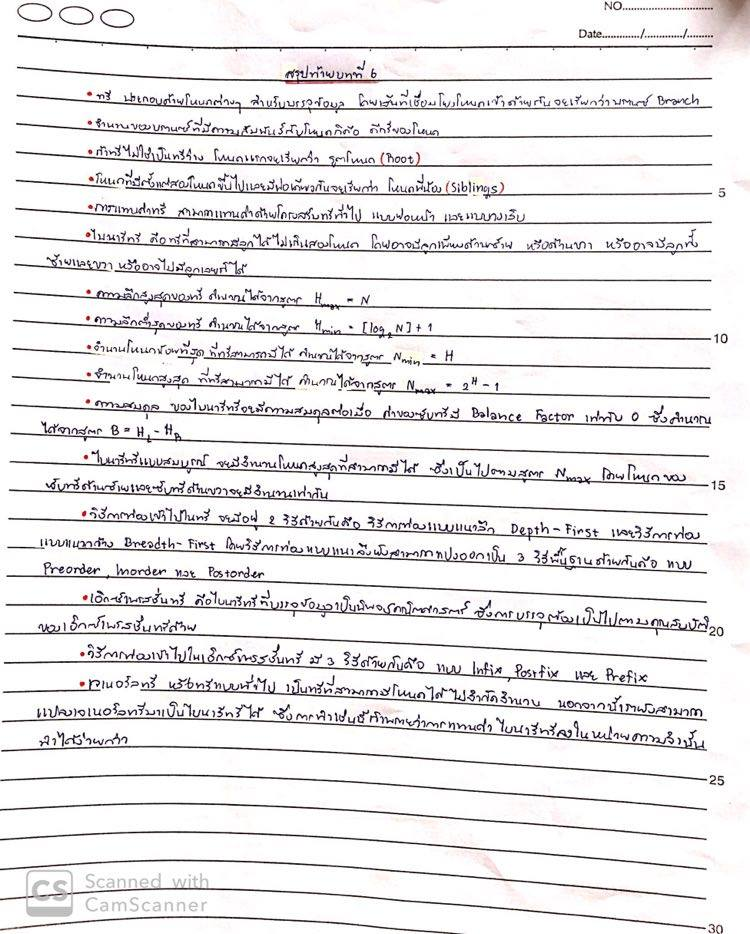 NO.
Date
สรุปท้ายบทที่ 6
• ทรี ประกอบด้วยโหนดต่างๆ สำหรับบรรจุข้อมูล โดยเส้นที่เชื่อมโยงโหนดเข้าด้วยกันจะเรียกว่าบรานช์ Branch
• จำนวนของบรานช์ที่มีความสัมพันธ์กับโหนดก็คือ ดีกรีของโหนด
• ถ้าทรีไม่ใช่เป็นทรีว่าง โหนดแรกจะเรียกว่า รูตโหนด (Root)
• โหนดที่มีตั้งแต่สองโหนดขึ้นไปและมีพ่อเดียวกันจะเรียกว่า โหนดพี่น้อง (Siblings)
5
• การแทนค่าทรี สามารถแทนค่าด้วยโครงสร้างทรีทั่วไป แบบย่อหน้า และแบบวงเล็บ
• ไบนารีทรี คือทรีที่สามารถมีลูกได้ไม่เกินสองโหนด โดยอาจมีลูกเพียงด้านซ้าย หรือด้านขวา หรืออาจมีลูกทั้ง
ซ้ายและขวา หรืออาจไม่มีลูกเลยก็ได้
• ความลึกสูงสุดของทรี คำนวณได้จากสูตร Hmax = N
• ความลึกต่ำสุดของทรี คำนวณได้จากสูตร Hmin = [log2 N] + 1
10
• จำนวนโหนดน้อยที่สุด ที่ทรีสามารถมีได้ คำนวณได้จากสูตร Nmin = H
• จำนวนโหนดสูงสุด ที่ทรีสามารถมีได้ คำนวณได้จากสูตร Nmax = 2^H - 1
• ความสมดุล ของไบนารีทรีจะมีความสมดุลต่อเมื่อ ค่าของทรีมี Balance Factor เท่ากับ 0 ซึ่งคำนวณ
ได้จากสูตร B = HL - HR
• ไบนารีทรีแบบสมบูรณ์ จะมีจำนวนโหนดสูงสุดที่สามารถมีได้ ซึ่งเป็นไปตามสูตร Nmax โดยโหนดของ
15
ซับทรีด้านซ้ายและซับทรีด้านขวาจะมีจำนวนเท่ากัน
• วิธีการท่องเข้าไปในทรี จะมีอยู่ 2 วิธีด้วยกันคือ วิธีการท่องแบบแนวลึก Depth-First และวิธีการท่อง
แบบแนวกว้าง Breadth-First โดยวิธีการท่องแบบแนวลึกยังสามารถแบ่งออกเป็น 3 วิธีพื้นฐานด้วยกันคือ แบบ
Preorder, Inorder และ Postorder
• เอ็กซ์เพรสชั่นทรี คือไบนารีทรีที่บรรจุข้อมูลเป็นนิพจน์คณิตศาสตร์ ซึ่งการบรรจุต้องเป็นไปตามคุณสมบัติ
20
ของเอ็กซ์เพรสชั่นทรีด้วย
• วิธีการท่องเข้าไปในเอ็กซ์เพรสชั่นทรี มี 3 วิธีด้วยกันคือ แบบ Infix, Postfix และ Prefix
• เจเนอรัลทรี หรือทรีแบบทั่วไป เป็นทรีที่สามารถมีโหนดได้ไม่จำกัดจำนวน นอกจากนี้เรายังสามารถ
แปลงเจเนอรัลทรีมาเป็นไบนารีทรีได้ ซึ่งการทำเช่นนี้ก็หมายว่าการแทนค่า ไบนารีทรีลงในหน่วยความจำนั้น
ทำได้ง่ายกว่า
25
CS Scanned with
CamScanner
30